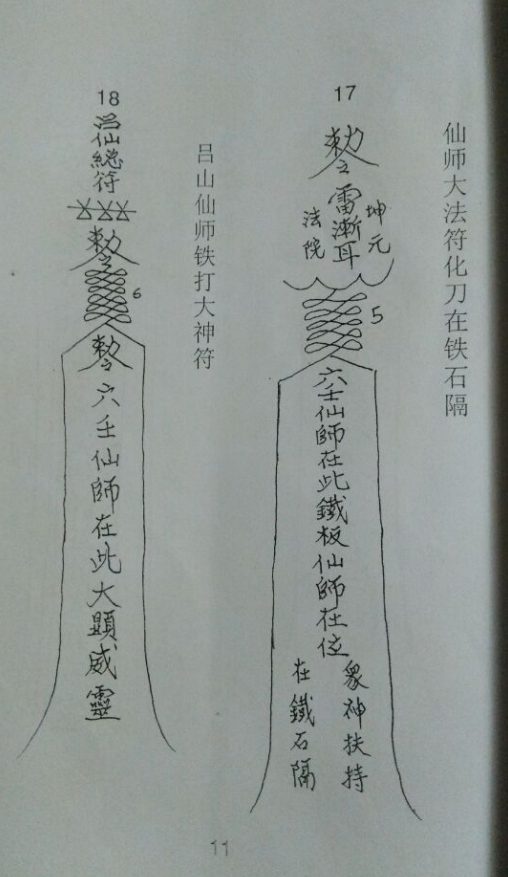 仙师大法符化刀在铁石隔
17
敕令
雷渐耳
坤元
法院
5
六壬仙師在此鐵板仙師在位
眾神扶持
在鐵石隔
吕山仙师铁打大神符
18
仙總符
敕令
6
敕令
六壬仙師在此大顯威靈
11